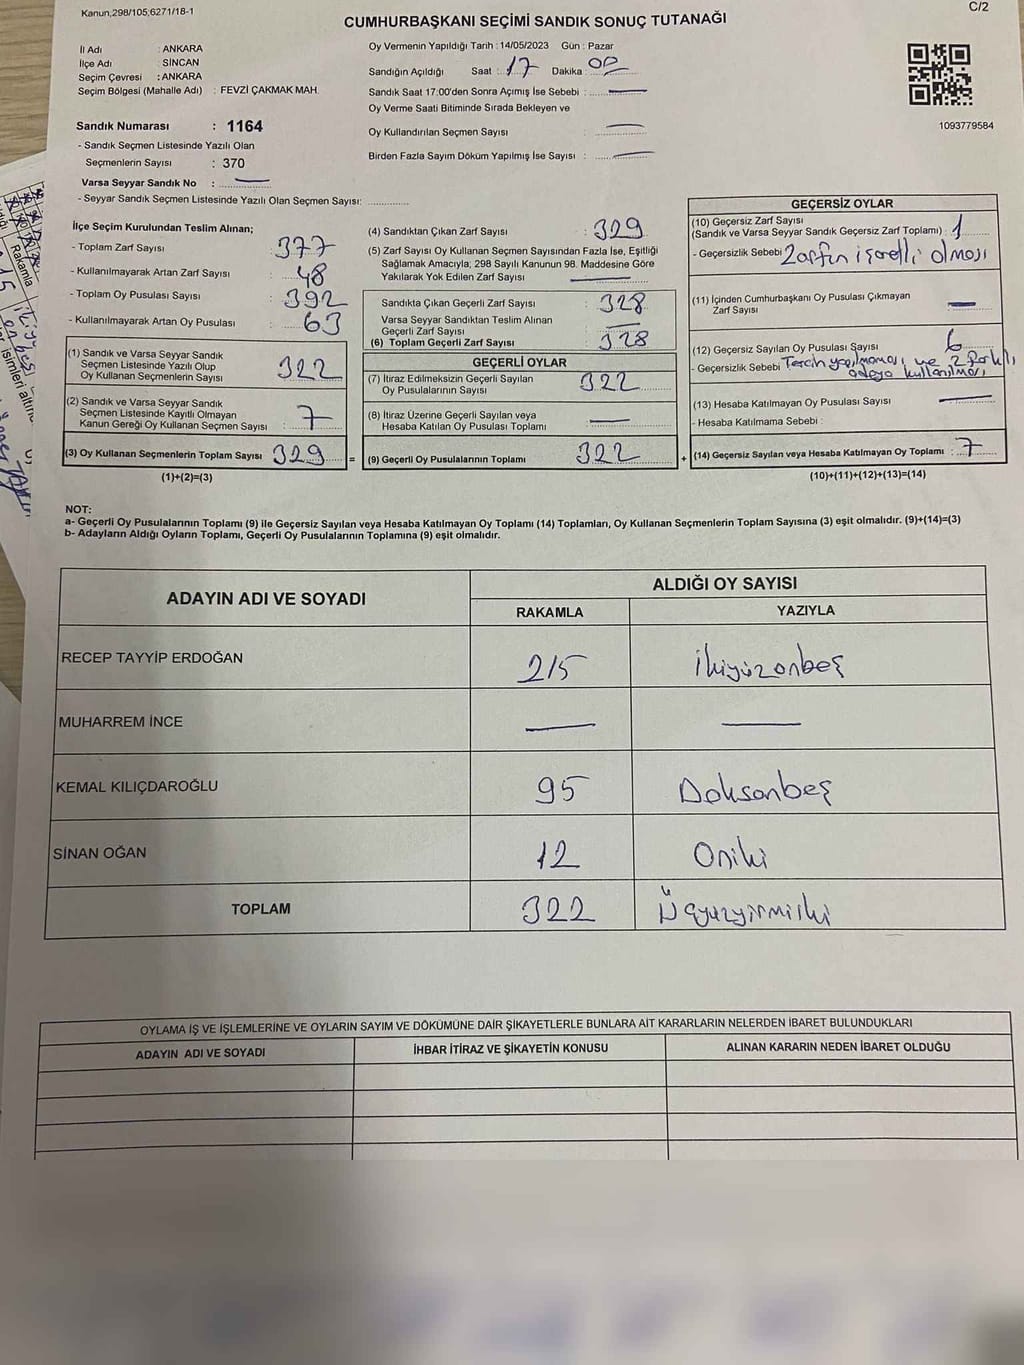 Kanun,298/105;6271/18-1
C/2
CUMHURBAŞKANI SEÇİMİ SANDIK SONUÇ TUTANAĞI
İl Adı : ANKARA
İlçe Adı : SİNCAN
Seçim Çevresi : ANKARA
Seçim Bölgesi (Mahalle Adı) : FEVZİ ÇAKMAK MAH.
Sandık Numarası : 1164
- Sandık Seçmen Listesinde Yazılı Olan
Seçmenlerin Sayısı : 370
Varsa Seyyar Sandık No :
- Seyyar Sandık Seçmen Listesinde Yazılı Olan Seçmen Sayısı:
Oy Vermenin Yapıldığı Tarih : 14/05/2023 Gün : Pazar
Sandığın Açıldığı Saat : 17 Dakika : 00
Sandık Saat 17:00'den Sonra Açımış İse Sebebi :
Oy Verme Saati Bitiminde Sırada Bekleyen ve
Oy Kullandırılan Seçmen Sayısı :
Birden Fazla Sayım Döküm Yapılmış İse Sayısı :
1093779584
İlçe Seçim Kurulundan Teslim Alınan;
- Toplam Zarf Sayısı : 377
- Kullanılmayarak Artan Zarf Sayısı : 48
- Toplam Oy Pusulası Sayısı : 392
- Kullanılmayarak Artan Oy Pusulası : 63
(1) Sandık ve Varsa Seyyar Sandık
Seçmen Listesinde Yazılı Olup
Oy Kullanan Seçmenlerin Sayısı : 322
(2) Sandık ve Varsa Seyyar Sandık
Seçmen Listesinde Kayıtlı Olmayan
Kanun Gereği Oy Kullanan Seçmen Sayısı : 7
(3) Oy Kullanan Seçmenlerin Toplam Sayısı : 329 =
(1)+(2)=(3)
(4) Sandıktan Çıkan Zarf Sayısı : 329
(5) Zarf Sayısı Oy Kullanan Seçmen Sayısından Fazla İse, Eşitliği
Sağlamak Amacıyla; 298 Sayılı Kanunun 98. Maddesine Göre
Yakılarak Yok Edilen Zarf Sayısı :
Sandıkta Çıkan Geçerli Zarf Sayısı : 328
Varsa Seyyar Sandıktan Teslim Alınan
Geçerli Zarf Sayısı :
(6) Toplam Geçerli Zarf Sayısı : 328
GEÇERLİ OYLAR
(7) İtiraz Edilmeksizin Geçerli Sayılan
Oy Pusulalarının Sayısı : 322
(8) İtiraz Üzerine Geçerli Sayılan veya
Hesaba Katılan Oy Pusulası Toplamı :
(9) Geçerli Oy Pusulalarının Toplamı : 322 +
GEÇERSİZ OYLAR
(10) Geçersiz Zarf Sayısı
(Sandık ve Varsa Seyyar Sandık Geçersiz Zarf Toplamı) : 1
- Geçersizlik Sebebi : Zarfın işaretli olması
(11) İçinden Cumhurbaşkanı Oy Pusulası Çıkmayan
Zarf Sayısı :
(12) Geçersiz Sayılan Oy Pusulası Sayısı : 6
- Geçersizlik Sebebi : Tercih yapılmaması ve 2 farklı
adaya kullanılması
(13) Hesaba Katılmayan Oy Pusulası Sayısı :
- Hesaba Katılmama Sebebi :
(14) Geçersiz Sayılan veya Hesaba Katılmayan Oy Toplamı : 7
(10)+(11)+(12)+(13)=(14)
NOT:
a- Geçerli Oy Pusulalarının Toplamı (9) ile Geçersiz Sayılan veya Hesaba Katılmayan Oy Toplamı (14) Toplamları, Oy Kullanan Seçmenlerin Toplam Sayısına (3) eşit olmalıdır. (9)+(14)=(3)
b- Adayların Aldığı Oyların Toplamı, Geçerli Oy Pusulalarının Toplamına (9) eşit olmalıdır.
ADAYIN ADI VE SOYADI
ALDIĞI OY SAYISI
RAKAMLA YAZIYLA
RECEP TAYYİP ERDOĞAN 215 ikiyüzonbeş
MUHARREM İNCE
KEMAL KILIÇDAROĞLU 95 Doksanbeş
SİNAN OĞAN 12 Oniki
TOPLAM 322 Üçyüzyirmiiki
OYLAMA İŞ VE İŞLEMLERİNE VE OYLARIN SAYIM VE DÖKÜMÜNE DAİR ŞİKAYETLERLE BUNLARA AİT KARARLARIN NELERDEN İBARET BULUNDUKLARI
ADAYIN ADI VE SOYADI İHBAR İTİRAZ VE ŞİKAYETİN KONUSU ALINAN KARARIN NEDEN İBARET OLDUĞU
Rakamla
isimleri altına